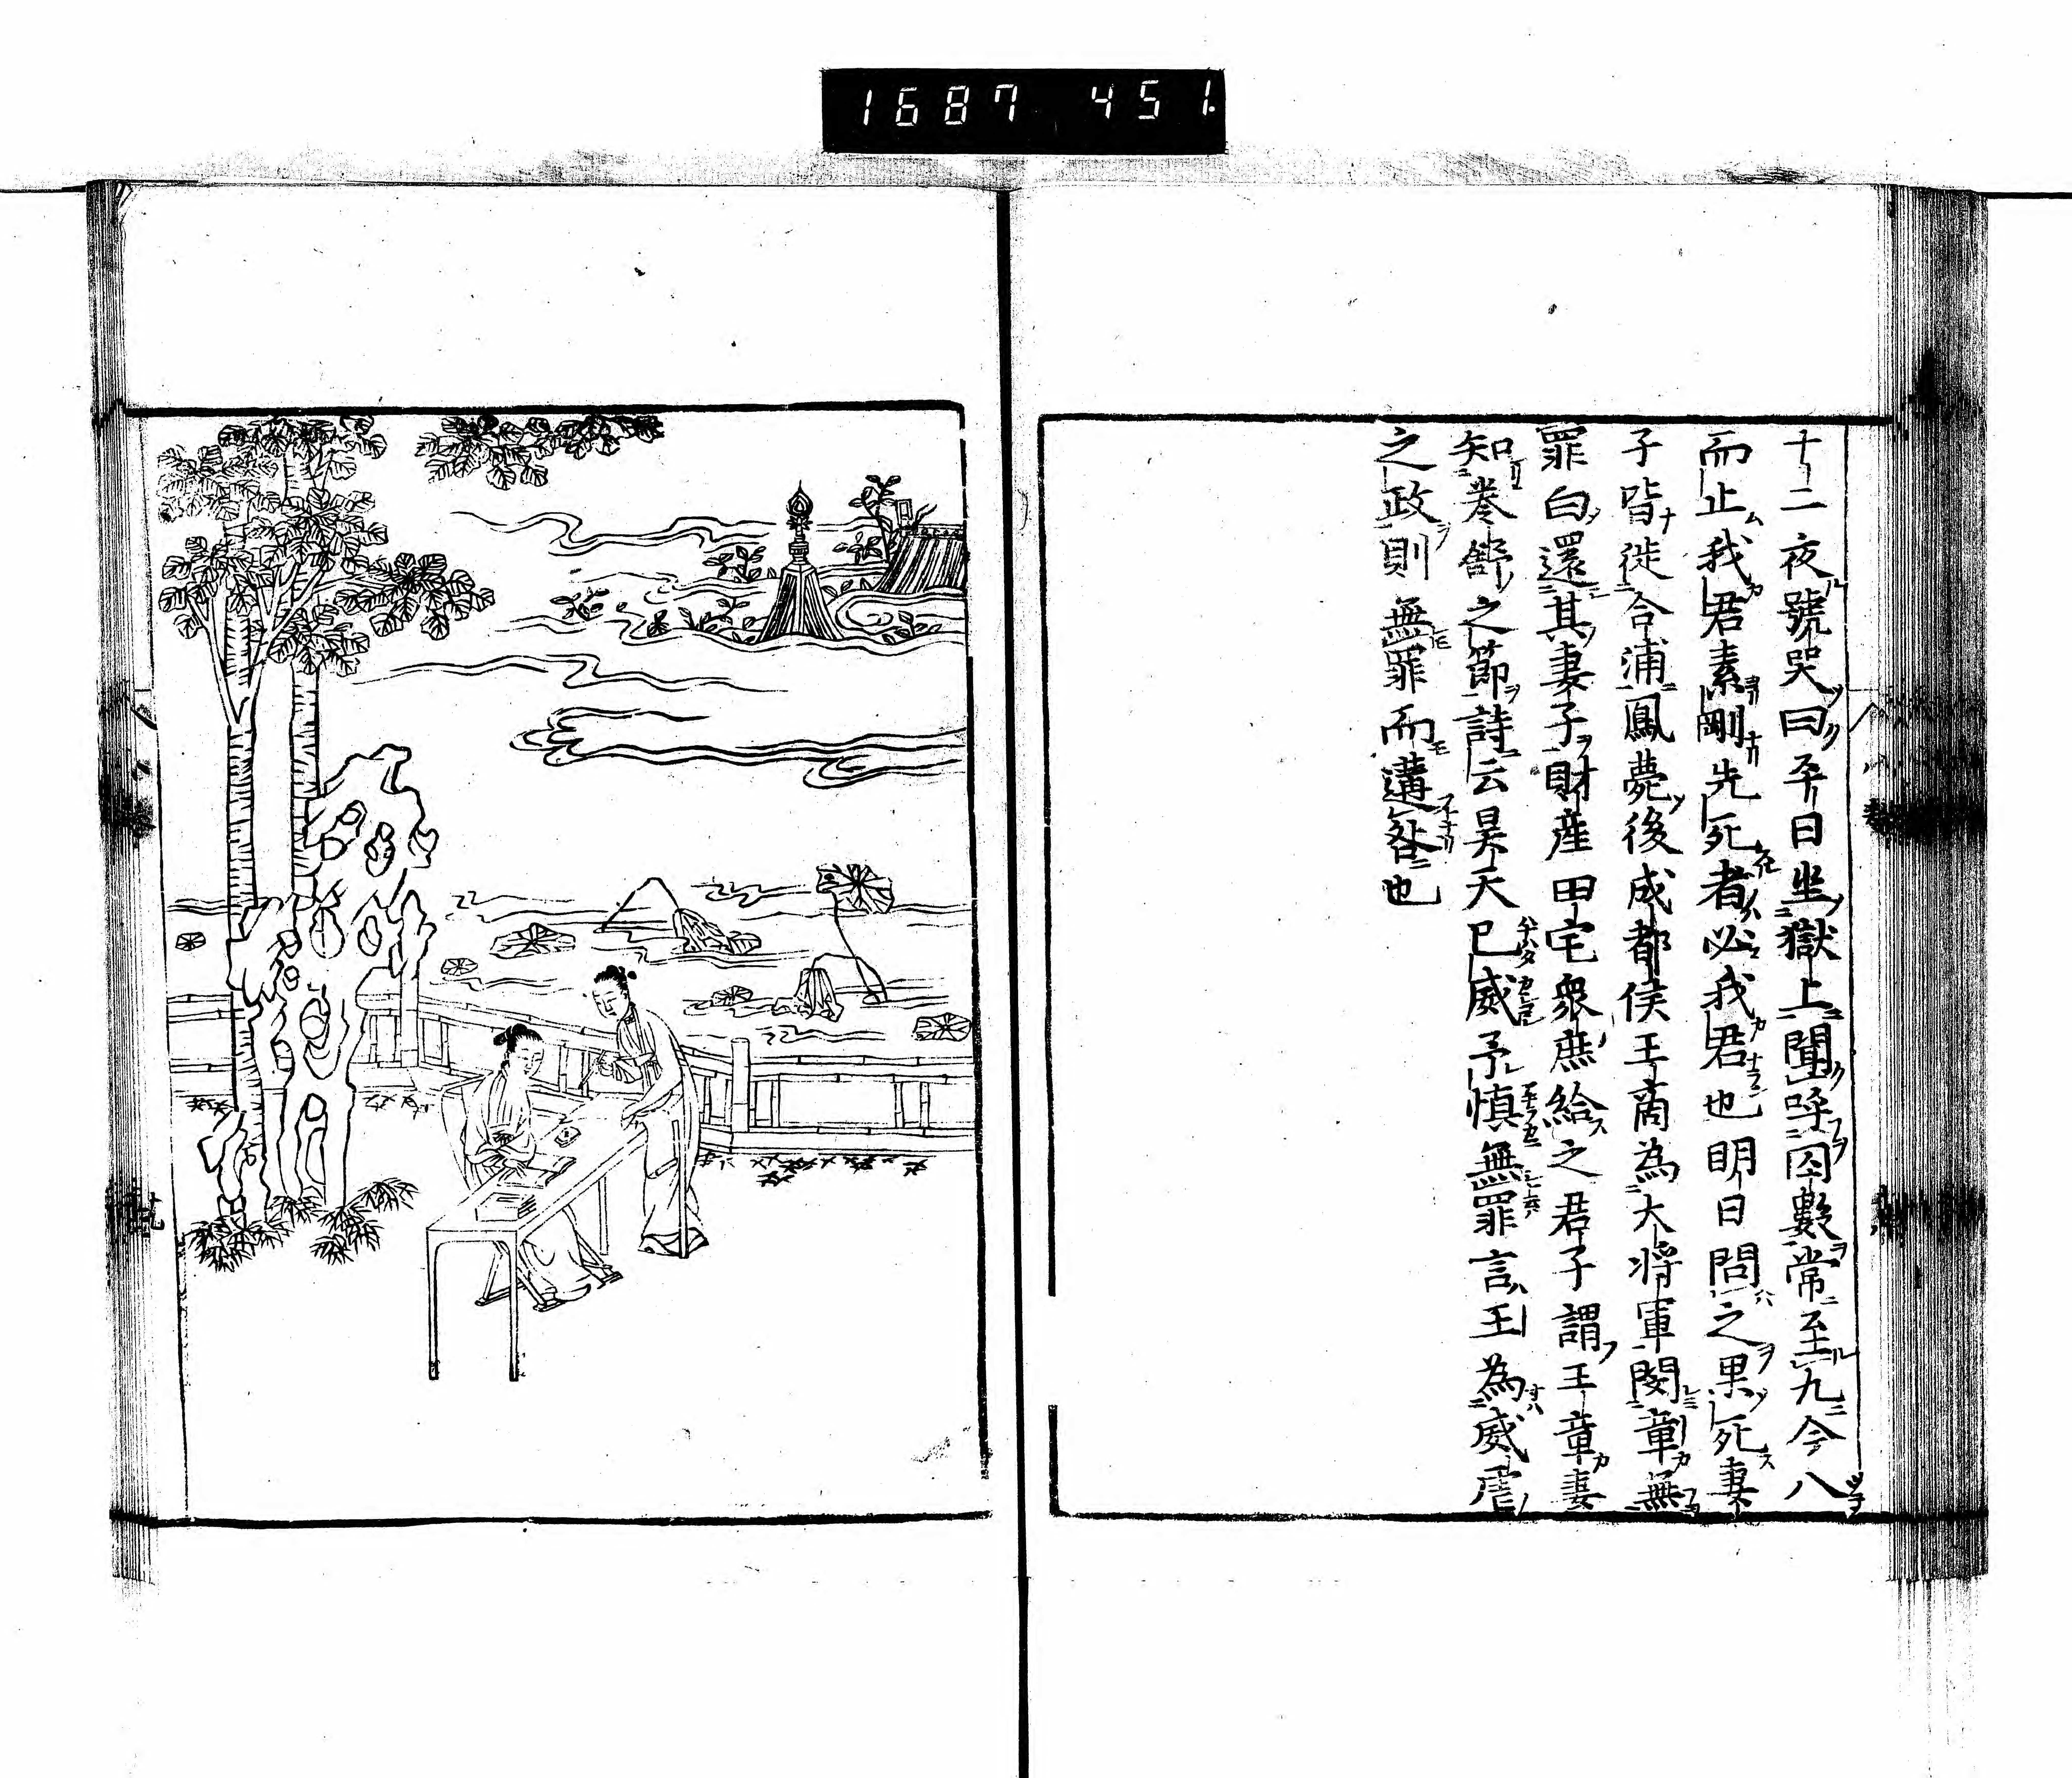 1687 451
十二夜號哭曰平日坐獄上聞呼囚數常至九今八
而止我君素剛先死者必我君也明日問之果死妻
子皆徙合浦鳳薨後成都侯王商為大將軍閔章無
罪白還其妻子財産田宅衆庶給之君子謂王章妻
知卷舒之節詩云昊天已威予慎無罪言王為威虐
之政則無罪而遘咎也